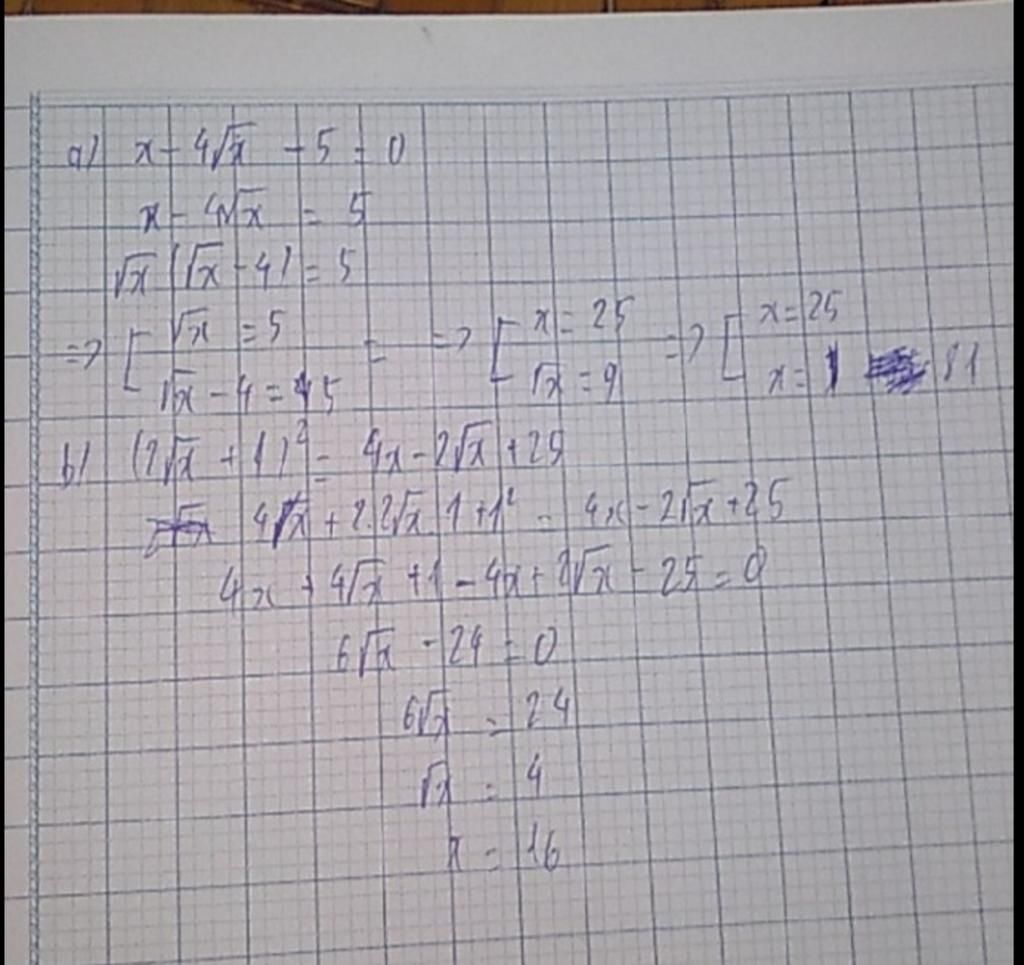 a) x - 4√x - 5 = 0
x - 4√x = 5
√x (√x - 4) = 5
=> [ √x = 5 => [ x = 25 => [ x = 25
√x - 4 = 5 √x = 9 x = 81
b) (2√x + 1)² = 4x - 2√x + 25
4x + 2.2√x 1 + 1² = 4x - 2√x + 25
4x + 4√x + 1 - 4x + 2√x - 25 = 0
6√x - 24 = 0
6√x = 24
√x = 4
x = 16